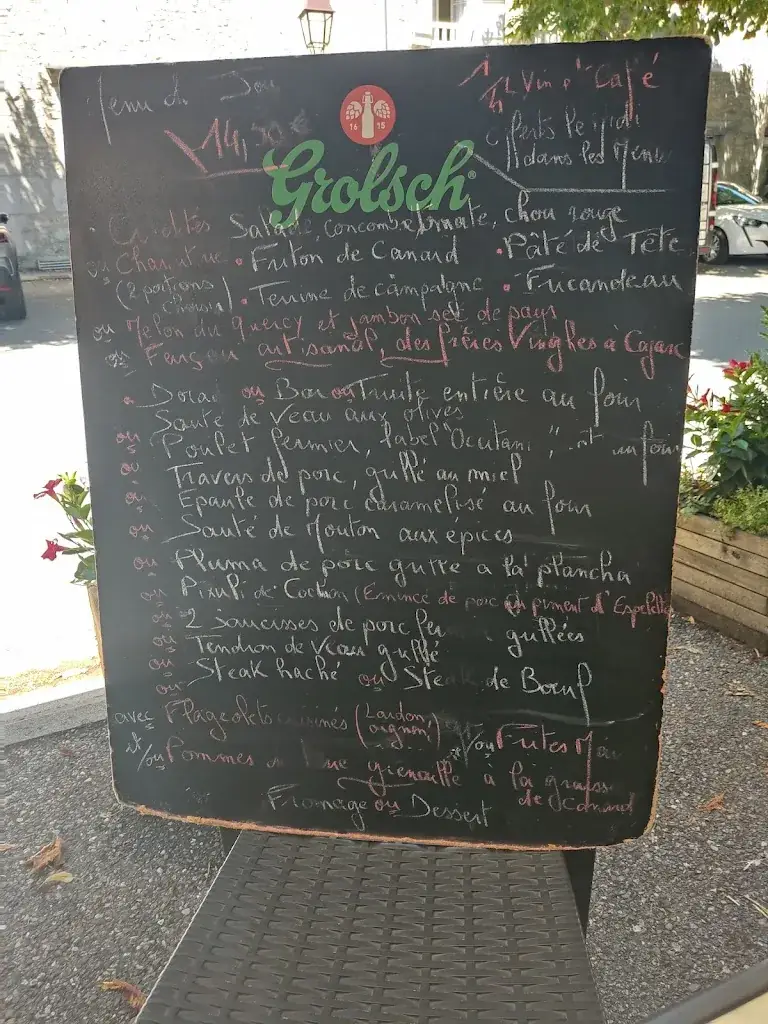 Menu du Jour
1/4 Vin et Café
14,
offerts le midi
dans les Menu
16 15
Grolsch
Crudités Salade, concombre, tomate, chou rouge
ou Charcuterie • Friton de Canard • Pâté de Tête
(2 portions • Terrine de campagne • Fricandeau
ou Melon du quercy et jambon sec de pays
ou artisanal, des frères Vinghes à Cajarc
• Dorade ou Bar ou Truite entière au four
Sauté de veau aux olives
ou Poulet Fermier, label "Occitani" au four
ou Travers de porc, grillé au miel
ou Epaule de porc caramélisé au four
ou Sauté de Mouton aux épices
ou Pluma de porc grillé a la plancha
ou de Cochon (Emincé de porc au piment d'Espelette
ou 2 saucisses de porc grillées
ou Tendron de Veau grillé
ou Steak haché ou Steak de Bœuf
avec Flageolets cuisinés (Lardon, oignon) et/ou Frites
et/ou Pommes de grenaille à la graisse de canard
Fromage ou Dessert